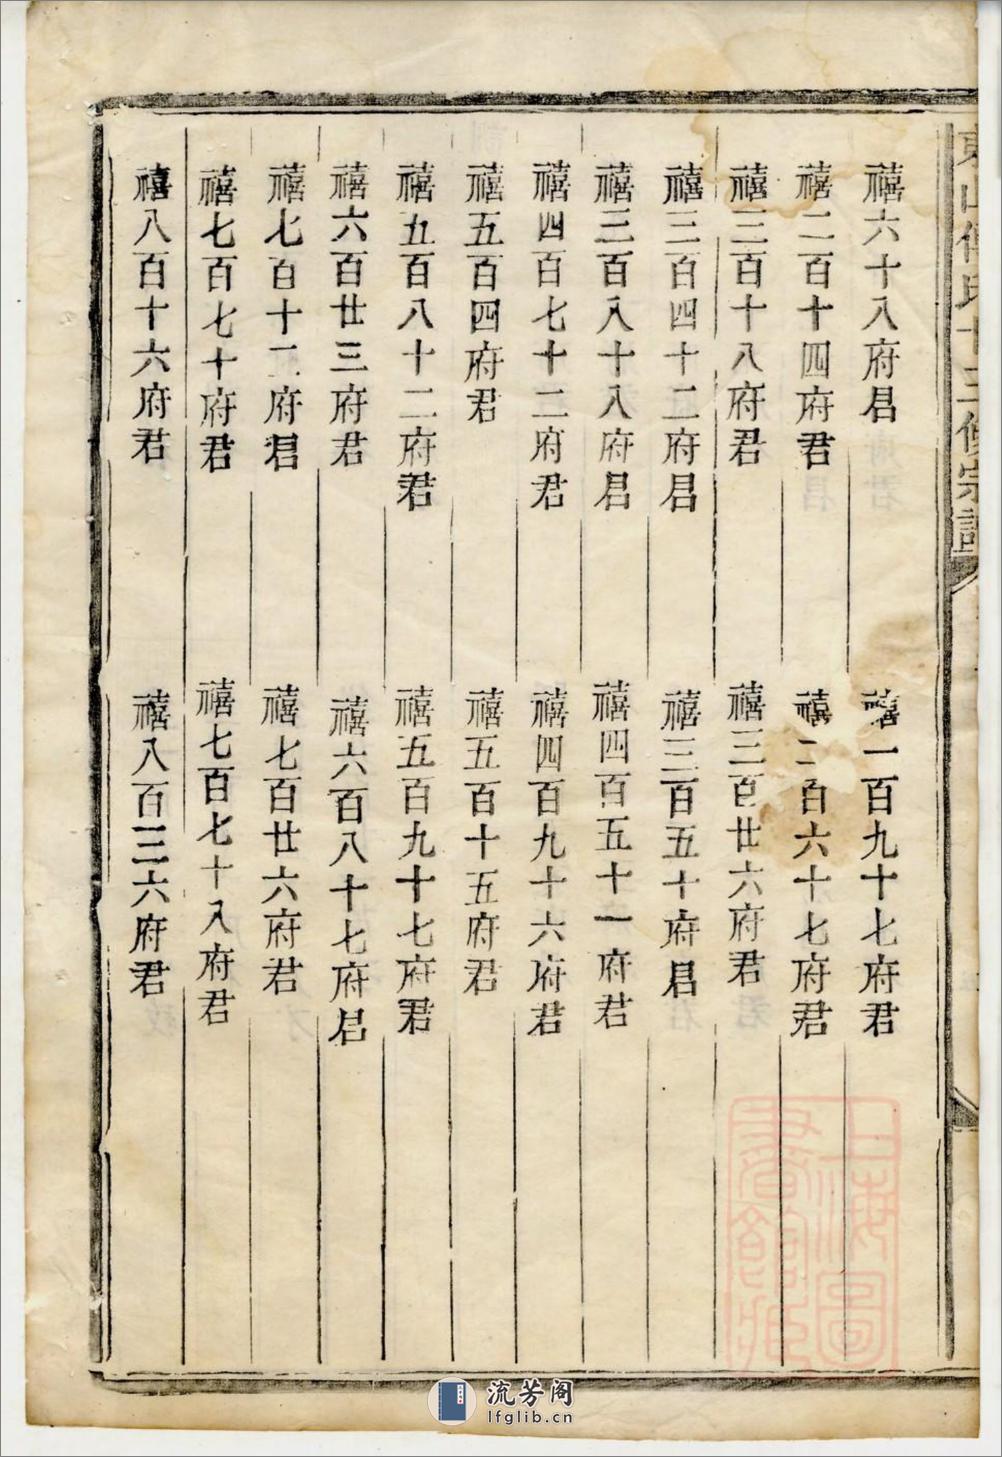 禧六十八府君
禧一百九十七府君
禧二百十四府君
禧二百六十七府君
禧三百十八府君
禧三百廿六府君
禧三百四十二府君
禧三百五十府君
禧三百八十八府君
禧四百五十一府君
禧四百七十二府君
禧四百九十六府君
禧五百四府君
禧五百十五府君
禧五百八十二府君
禧五百九十七府君
禧六百廿三府君
禧六百八十七府君
禧七百十二府君
禧七百廿六府君
禧七百七十府君
禧七百七十八府君
禧八百十六府君
禧八百三六府君
上海圖書館藏
流芳阁
lfglib.cn